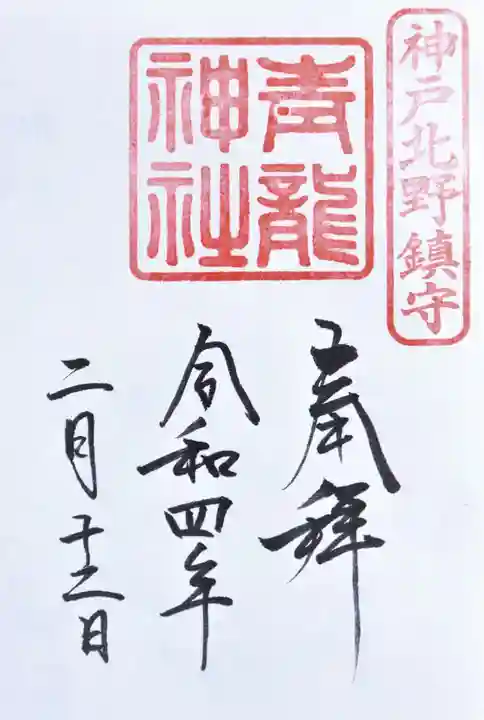 神戸北野鎮守
奉拝
青龍
神社
令和四年
二月十二日